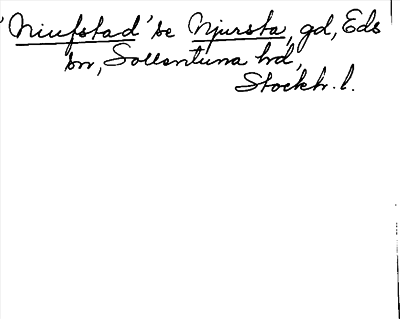 'Niufstad' se Njursta, gd, Eds
sn, Sollentuna hd,
Stockh. l.